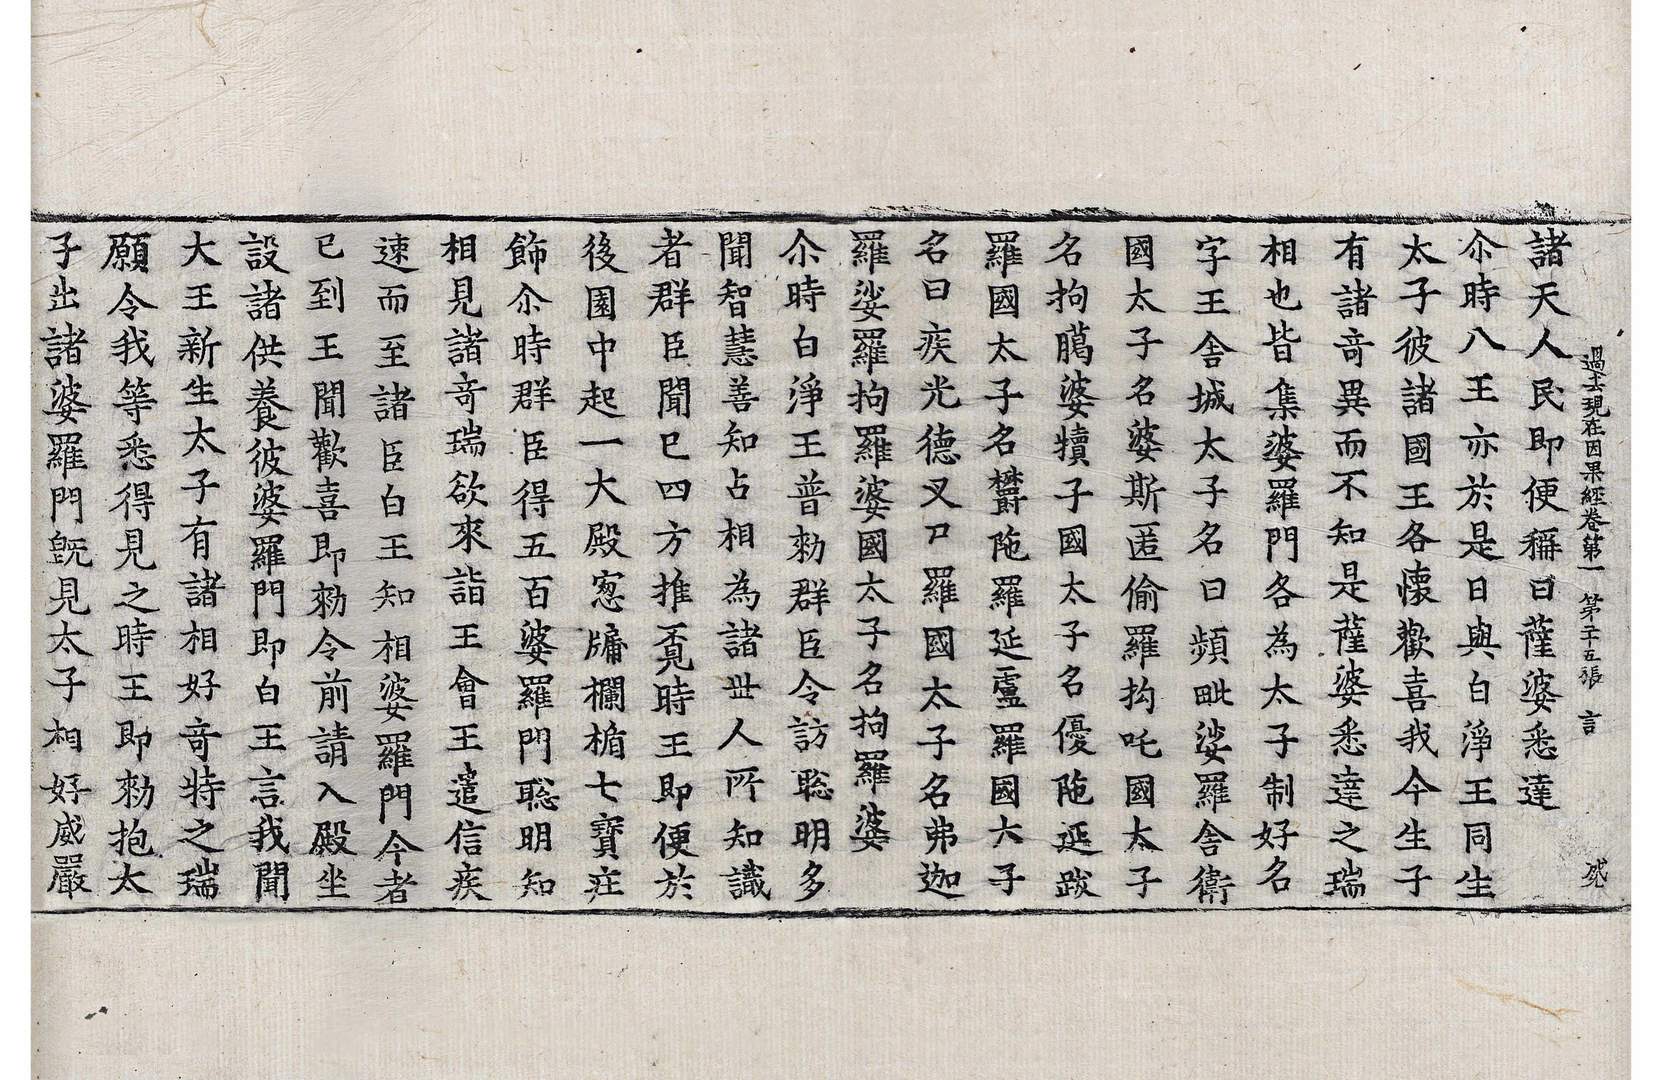 過去現在因果經卷第一 第二十五張 言
諸天人民即便稱曰薩婆悉達
尒時八王亦於是日與白淨王同生
太子彼諸國王各懷歡喜我今生子
有諸竒異而不知是薩婆悉達之瑞
相也皆集婆羅門各為太子制好名
字王舎城太子名曰頻毗娑羅舎衛
國太子名婆斯匿偷羅拘吒國太子
名拘臈婆犢子國太子名優陁延跋
羅國太子名欝陁羅延盧羅國太子
名曰疾光德叉尸羅國太子名弗迦
羅娑羅拘羅婆國太子名拘羅婆
尒時白淨王普勑群臣令訪聡明多
聞智慧善知占相為諸世人所知識
者群臣聞已四方推覔時王即便於
後園中起一大殿窓牖欄楯七寳莊
飾尒時群臣得五百婆羅門聡明知
相見諸竒瑞欲來詣王會王遣信疾
速而至諸臣白王知相婆羅門今者
已到王聞歡喜即勑令前請入殿坐
設諸供養彼婆羅門即白王言我聞
大王新生太子有諸相好竒特之瑞
願令我等悉得見之時王即勑抱太
子出諸婆羅門旣見太子相好威嚴